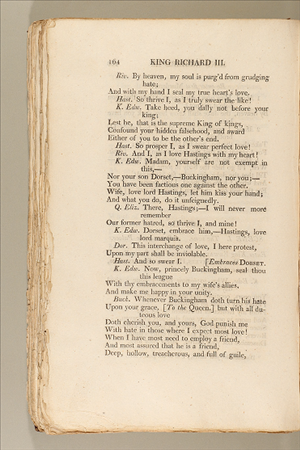 164 KING RICHARD III.
Riv. By heaven, my soul is purg'd from grudging
hate;
And with my hand I seal my true heart's love.
Hast. So thrive I, as I truly swear the like!
K. Edw. Take heed, you dally not before your
king;
Lest he, that is the supreme King of kings,
Confound your hidden falsehood, and award
Either of you to be the other's end.
Hast. So prosper I, as I swear perfect love!
Riv. And I, as I love Hastings with my heart!
K. Edw. Madam, yourself are not exempt in
this,—
Nor your son Dorset,—Buckingham, nor you;—
You have been factious one against the other.
Wife, love lord Hastings, let him kiss your hand;
And what you do, do it unfeignedly.
Q. Eliz. There, Hastings;—I will never more
remember
Our former hatred, so thrive I, and mine!
K. Edw. Dorset, embrace him,—Hastings, love
lord marquis.
Dor. This interchange of love, I here protest,
Upon my part shall be inviolable.
Hast. And so swear I. [Embraces DORSET.
K. Edw. Now, princely Buckingham, seal thou
this league
With thy embracements to my wife's allies,
And make me happy in your unity.
Buck. Whenever Buckingham doth turn his hate
Upon your grace, [To the Queen.] but with all du-
teous love
Doth cherish you, and yours, God punish me
With hate in those where I expect most love!
When I have most need to employ a friend,
And most assured that he is a friend,
Deep, hollow, treacherous, and full of guile,